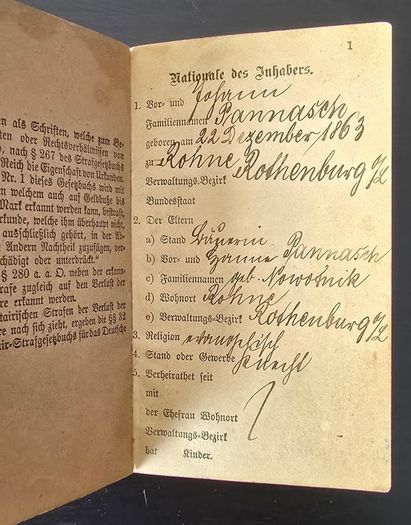 en als Schriften, welche zum Be-
ten oder Rechtsverhältnissen von
, nach § 267 des Strafgesetzbuchs
Reich die Eigenschaft von Urkunden.
Nr. 1 dieses Gesetzbuchs wird mit
n welchem auch auf Geldbuße bis
Mark erkannt werden kann, bestraft,
rkunde, welche ihm überhaupt nicht
ausschließlich gehört, in der Ab-
Andern Nachtheil zuzufügen, ver-
chädigt oder unterdrückt."
§ 280 a. a. O. neben der erkann-
trafe zugleich auf den Verlust der
re erkannt werden.
tairischen Strafen der Verlust der
re nach sich zieht, ergeben die §§ 32
air-Strafgesetzbuchs für das Deutsche
1
Nationale des Inhabers.
1. Vor- und Johann
Familiennamen Pannasch
geboren am 22 Dezember 1863
zu Rohne
Verwaltungs-Bezirk Rothenburg O/L
Bundesstaat
2. Der Eltern
a) Stand Bäuerin
b) Vor- und Hanne Pannasch
c) Familiennamen geb. Nowotnik
d) Wohnort Rohne
e) Verwaltungs-Bezirk Rothenburg O/L
3. Religion evangelisch
4. Stand oder Gewerbe Knecht
5. Verheirathet seit
mit
der Ehefrau Wohnort
Verwaltungs-Bezirk
hat Kinder.